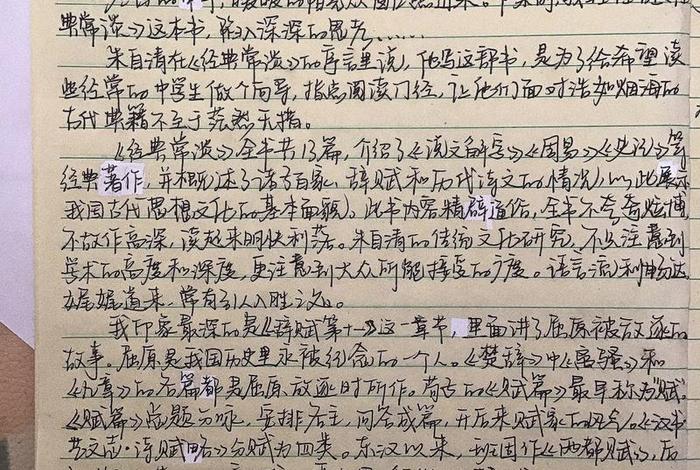 典常谈》这本书，陷入深深的思考……
朱自清在《经典常谈》的序言里说，他写这部书，是为了给希望读
些经常的中学生做个向导，指点阅读门经，让他们面对浩如烟海的
古代典籍不至于茫然无措。
《经典常谈》全书共13篇，介绍了《说文解字》《周易》《史记》等
经典著作，并概述了诸子百家，辞赋和历代诗文的情况，以此展示
我国古代思想文化的基本面貌。此书内容精辟通俗，全书不夸奇炫博
不故作高深，读起来明快利落。朱自清的传统文化研究，不只注意到
学术的高度和深度，更注意到大众所能接受的广度。语言流利畅达
娓娓道来，常有引人入胜之心。
我印象最深的是《辞赋第十一》这一章节，里面讲了屈原被放逐的
故事。屈原是我国历史里永被纪念的一个人。《楚辞》中《离骚》和
《九章》的各篇都是屈原放逐时所作。荀子的《赋篇》最早称为"赋"。
《赋篇》总题分咏，安排客主，问答成篇，开后来赋家的风气。《汉书·
艺文志·诗赋略》分赋为四类。东汉以来，班固作《两都赋》，后